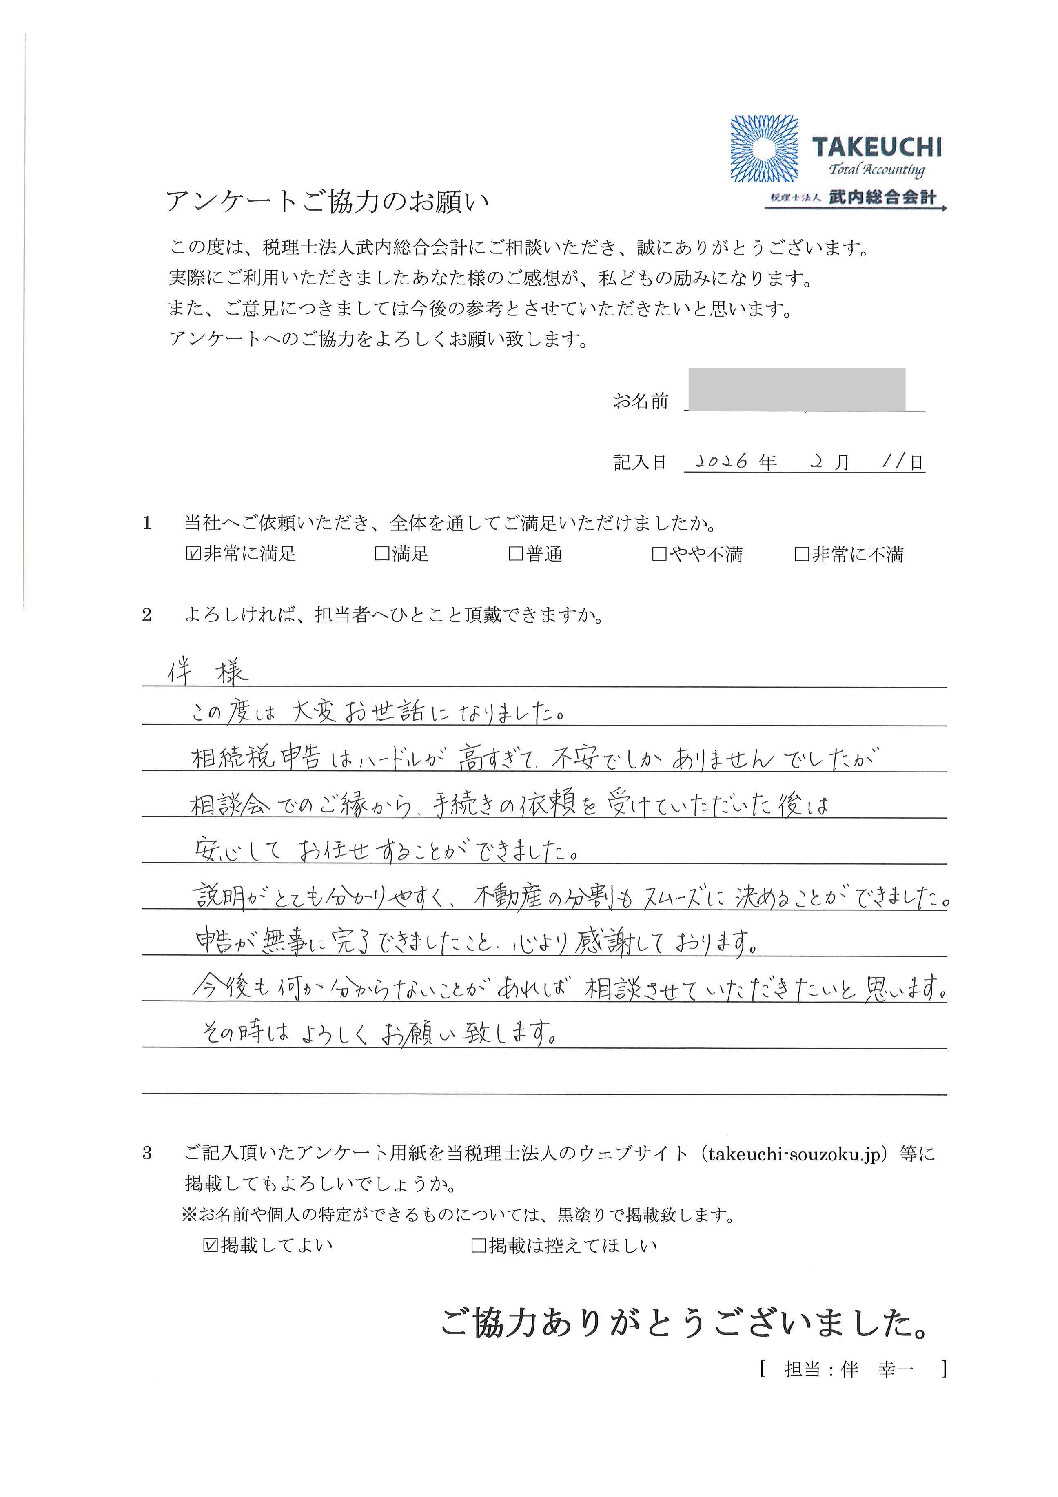 TAKEUCHI
Total Accounting
税理士法人 武内総合会計
アンケートご協力のお願い
この度は、税理士法人武内総合会計にご相談いただき、誠にありがとうございます。
実際にご利用いただきましたあなた様のご感想が、私どもの励みになります。
また、ご意見につきましては今後の参考とさせていただきたいと思います。
アンケートへのご協力をよろしくお願い致します。
お名前
記入日 2026年 2月 11日
1 当社へご依頼いただき、全体を通してご満足いただけましたか。
☑非常に満足 □満足 □普通 □やや不満 □非常に不満
2 よろしければ、担当者へひとこと頂戴できますか。
伴 様
この度は大変お世話になりました。
相続税申告はハードルが高すぎて、不安でしかありませんでしたが
相談会でのご縁から、手続きの依頼を受けていただいた後は
安心してお任せすることができました。
説明がとても分かりやすく、不動産の分割もスムーズに決めることができました。
申告が無事に完了できましたこと、心より感謝しております。
今後も何か分からないことがあれば相談させていただきたいと思います。
その時はよろしくお願い致します。
3 ご記入頂いたアンケート用紙を当税理士法人のウェブサイト（takeuchi-souzoku.jp）等に
掲載してもよろしいでしょうか。
※お名前や個人の特定ができるものについては、黒塗りで掲載致します。
☑掲載してよい □掲載は控えてほしい
ご協力ありがとうございました。
[ 担当：伴 幸一 ]